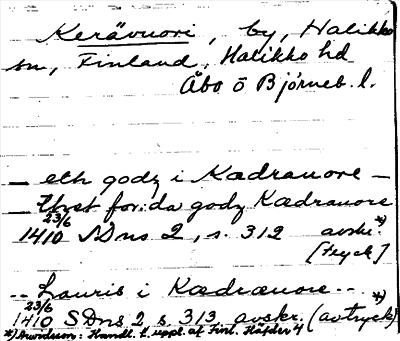 Kerävuori, by, Halikko
sn, Finland, Halikko hd
Åbo o Björneb. l.
— eth godz i Kædrauore —
— thet forida godz Kædrauore
23/6
1410 SDns 2, s. 312 avskr. *)
[tryck]
-- Lauris i Kædræuore --
23/6 *)
1410 SDns 2 s. 313 avskr. (avtryck)
*) Arwidsson: Handl. t. uppl. af Finl. Häfder 4